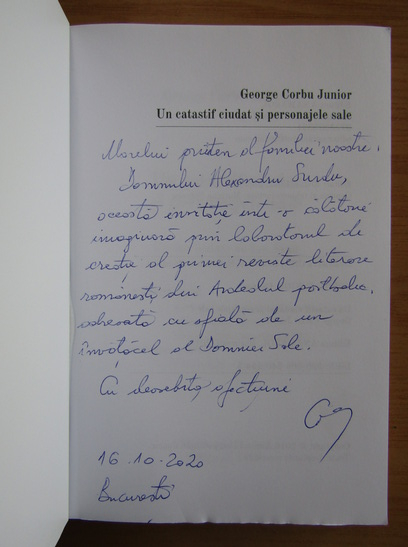 George Corbu Junior
Un catastif ciudat și personajele sale
Marelui prieten al familiei noastre,
Domnului Alexandru Surdu,
această invitație într-o călătorie
imaginară prin laboratorul de
creație al primei reviste literare
românești din Ardealul postbelic,
adresată cu sfială de un
învățăcel al Domniei Sale.
Cu deosebită afecțiune
16.10.2020
București